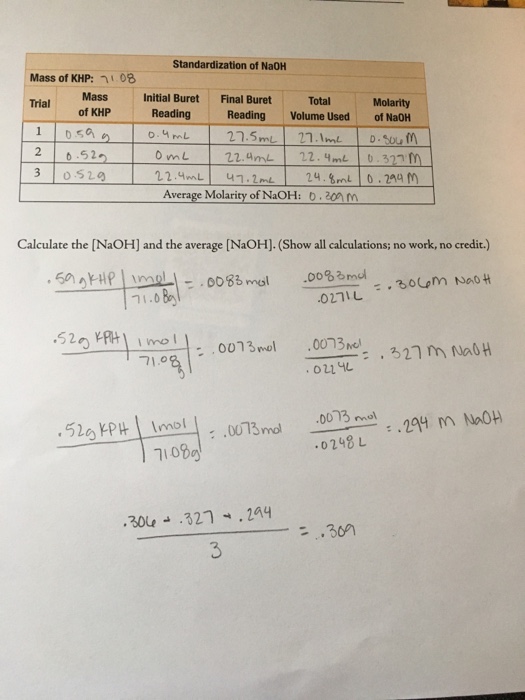 Standardization of NaOH
Mass of KHP: 71.08
Trial Mass of KHP Initial Buret Reading Final Buret Reading Total Volume Used Molarity of NaOH
1 0.59 g 0.4 mL 27.5 mL 27.1 mL 0.306 M
2 0.52 g 0 mL 22.4 mL 22.4 mL 0.327 M
3 0.52 g 22.4 mL 47.2 mL 24.8 mL 0.294 M
Average Molarity of NaOH: 0.309 M
Calculate the [NaOH] and the average [NaOH]. (Show all calculations; no work, no credit.)
.59 g KHP | 1 mol | = .0083 mol .0083 mol = .306 M NaOH
71.08g .0271 L
.52 g KPH | 1 mol | = .0073 mol .0073 mol = .327 M NaOH
71.08g .0224L
.52g KPH | 1mol | = .0073 mol .0073 mol = .294 M NaOH
71.08g .0248 L
.306 + .327 + .294 = .309
3